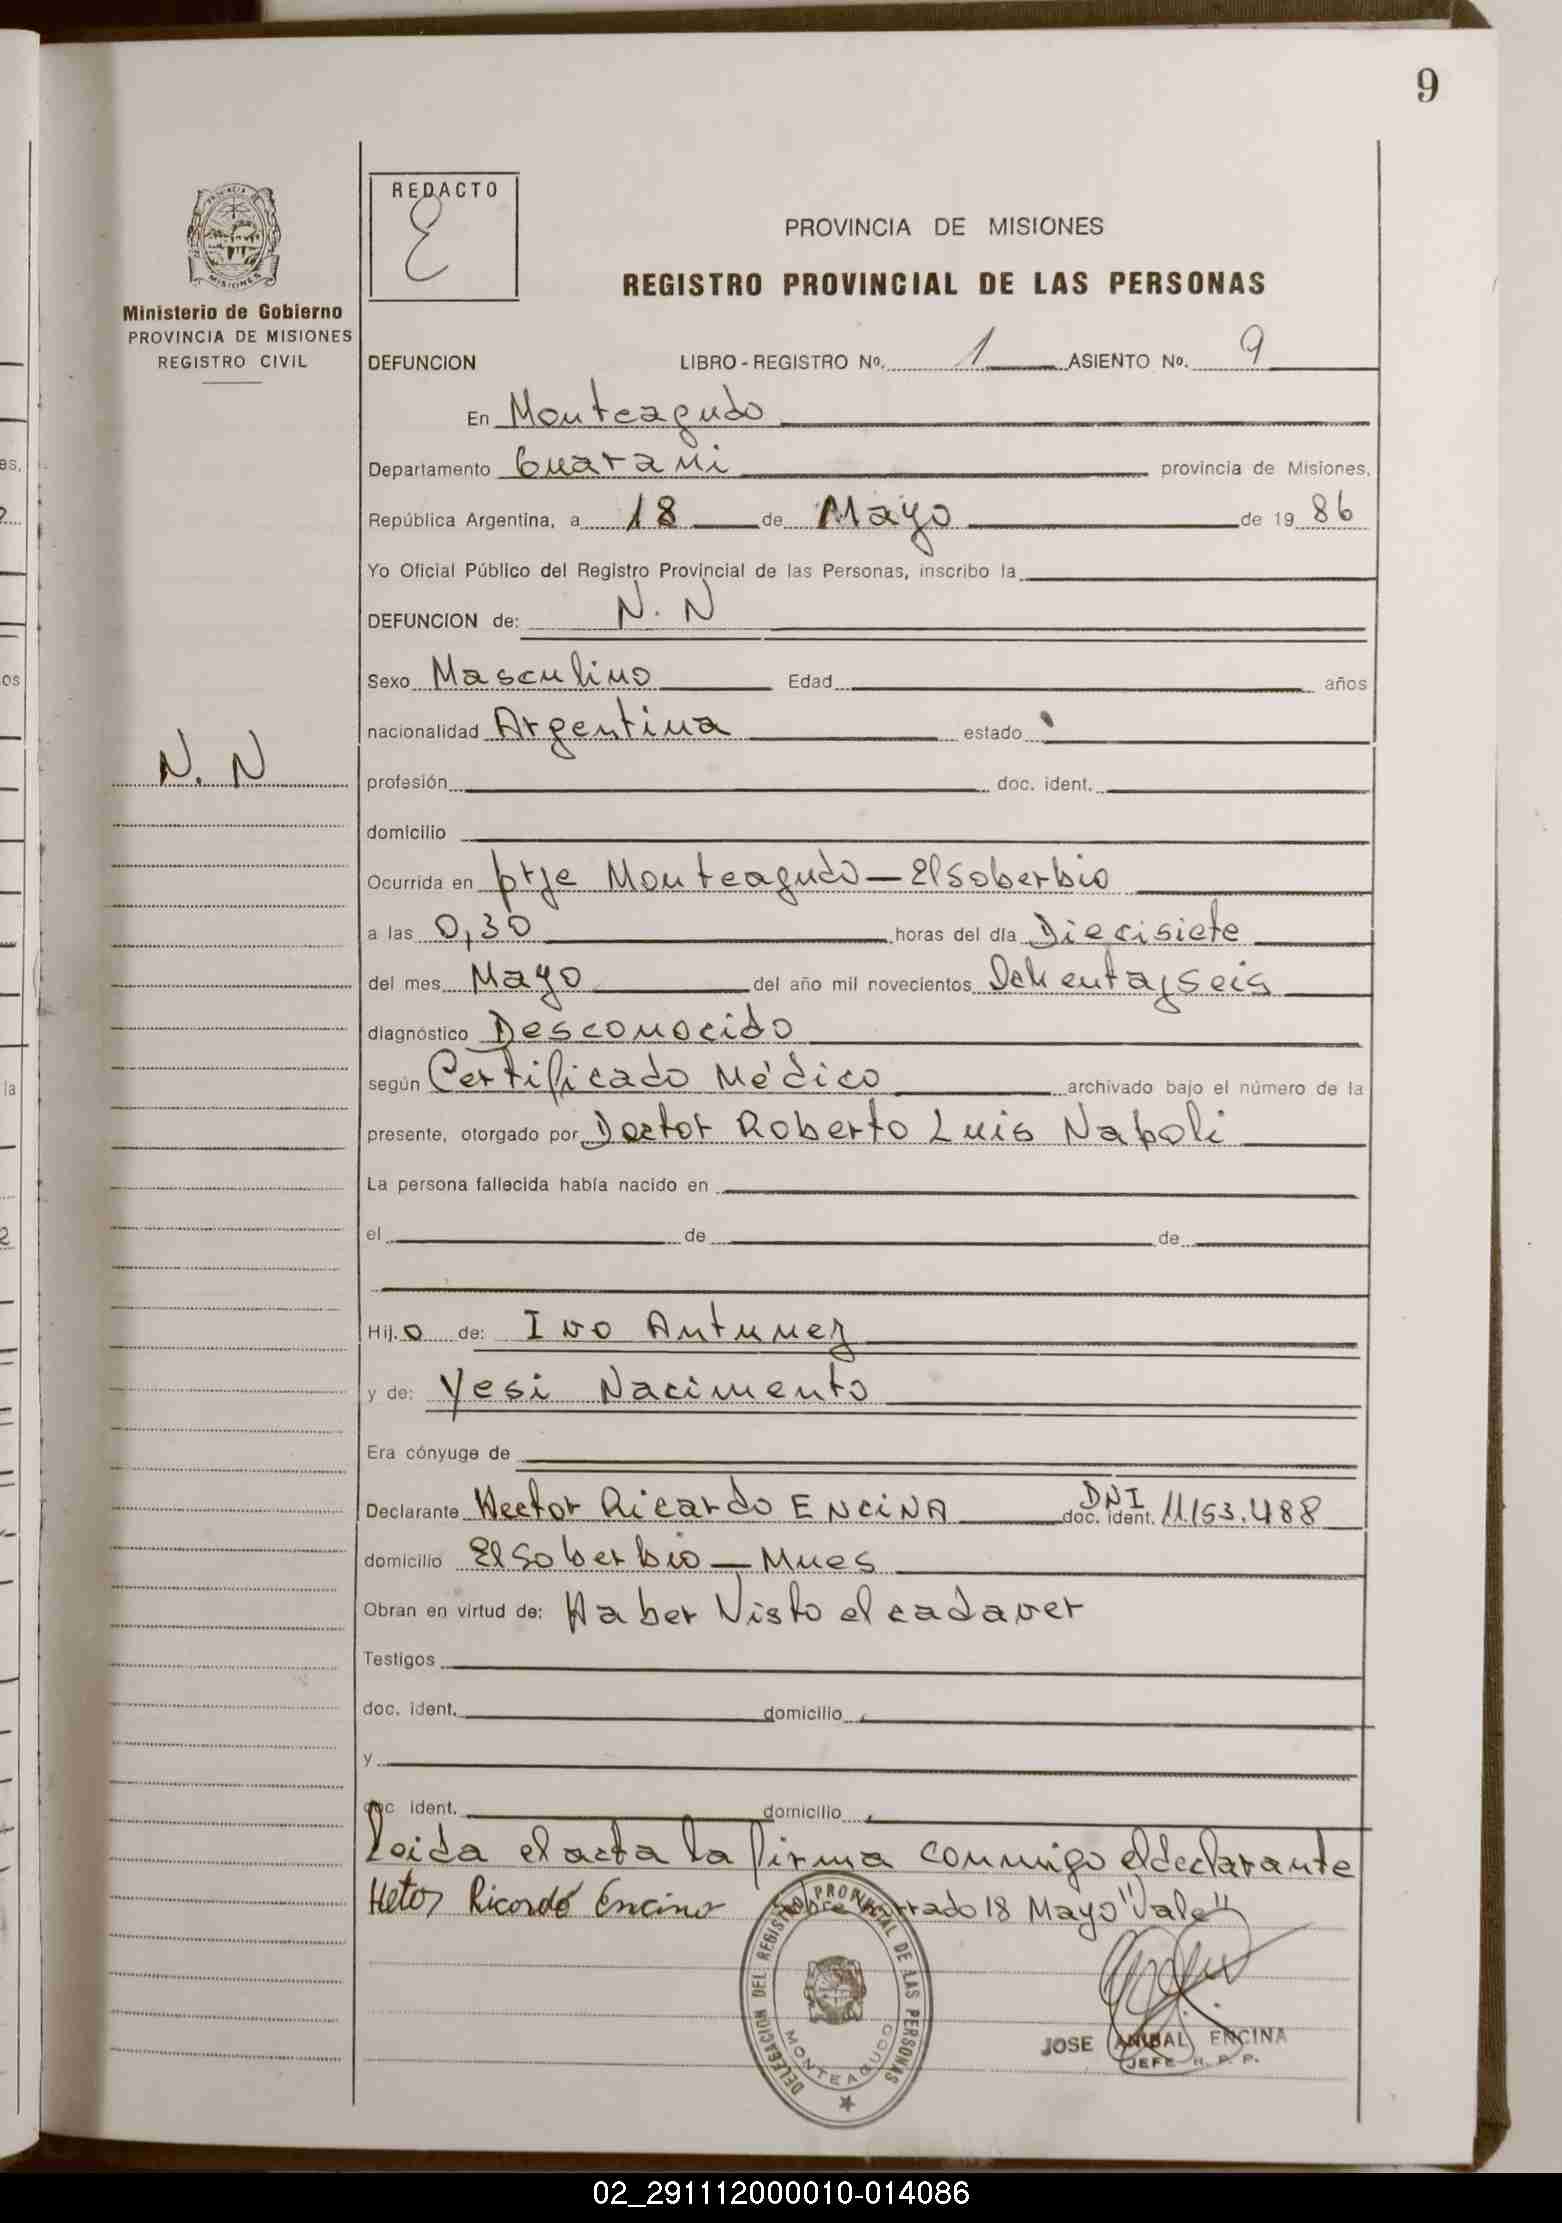 9
REDACTO
E
PROVINCIA DE MISIONES
REGISTRO PROVINCIAL DE LAS PERSONAS
PROVINCIA DE
MISIONES
Ministerio de Gobierno
PROVINCIA DE MISIONES
REGISTRO CIVIL
DEFUNCION LIBRO - REGISTRO No. 1 ASIENTO No. 9
En Monteagudo
Departamento Guarani provincia de Misiones,
República Argentina, a 18 de Mayo de 19 86
Yo Oficial Público del Registro Provincial de las Personas, inscribo la
DEFUNCION de: N. N
Sexo Masculino Edad años
nacionalidad Argentina estado
N. N
profesión doc. ident.
domicilio
Ocurrida en ptje Monteagudo - El Soberbio
a las 0,30 horas del día Diecisiete
del mes Mayo del año mil novecientos Ochentayseis
diagnóstico Desconocido
según Certificado Médico archivado bajo el número de la
presente, otorgado por Doctor Roberto Luis Napoli
La persona fallecida había nacido en
el de de
Hij o de: Ivo Antunez
y de: Yesi Nacimento
Era cónyuge de
Declarante Hector Ricardo ENCINA DNI doc. ident. 11.153.488
domicilio El Soberbio - Mnes
Obran en virtud de: Haber Visto el cadaver
Testigos
doc. ident. domicilio
y
doc ident. domicilio
Leida el acta la firma conmigo el declarante
Hetor Ricordo Encina Sobre borrado 18 Mayo "Vale"
DELEGACION DEL REGISTRO PROVINCIAL DE LAS PERSONAS
MONTEAGUDO
JOSE ANIBAL ENCINA
JEFE R. P. P.
02_291112000010-014086